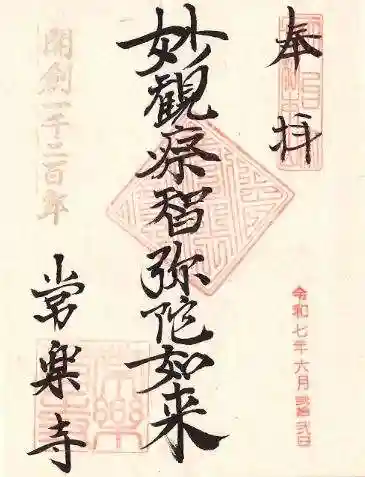 奉拝
令和七年六月弐拾弐日
妙觀察智弥陀如来
開創一千二百年
常楽寺